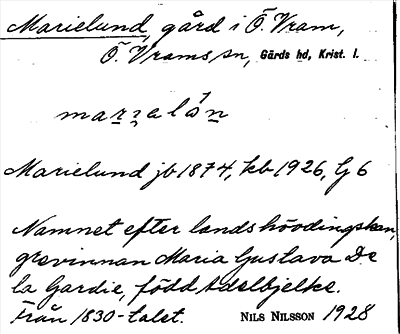 Marielund, gård i Ö. Vram,
Ö. Vrams sn, Gärds hd, Krist. l.
Marielund jb 1874, kb 1926, G 6
Namnet efter landshövdingskan,
grevinnan Maria Gustava De
la Gardie, född Adelbjelke.
Från 1830-talet. NILS NILSSON 1928